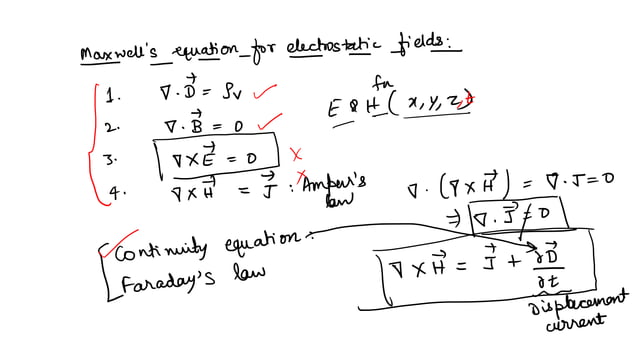 Maxwell's equation for electrostatic fields:
1. ∇·D⃗ = ρv ✓
2. ∇·B⃗ = 0 ✓
3. ∇×E⃗ = 0 ×
4. ∇×H⃗ = J⃗ : Amper's law ×
fn
E & H (x, y, z, t)
∇·(∇×H⃗) = ∇·J = 0
⇒ ∇·J⃗ ≠ 0
Continuity equation:
Faraday's law
∇×H⃗ = J⃗ + ∂D⃗/∂t
Displacement
current